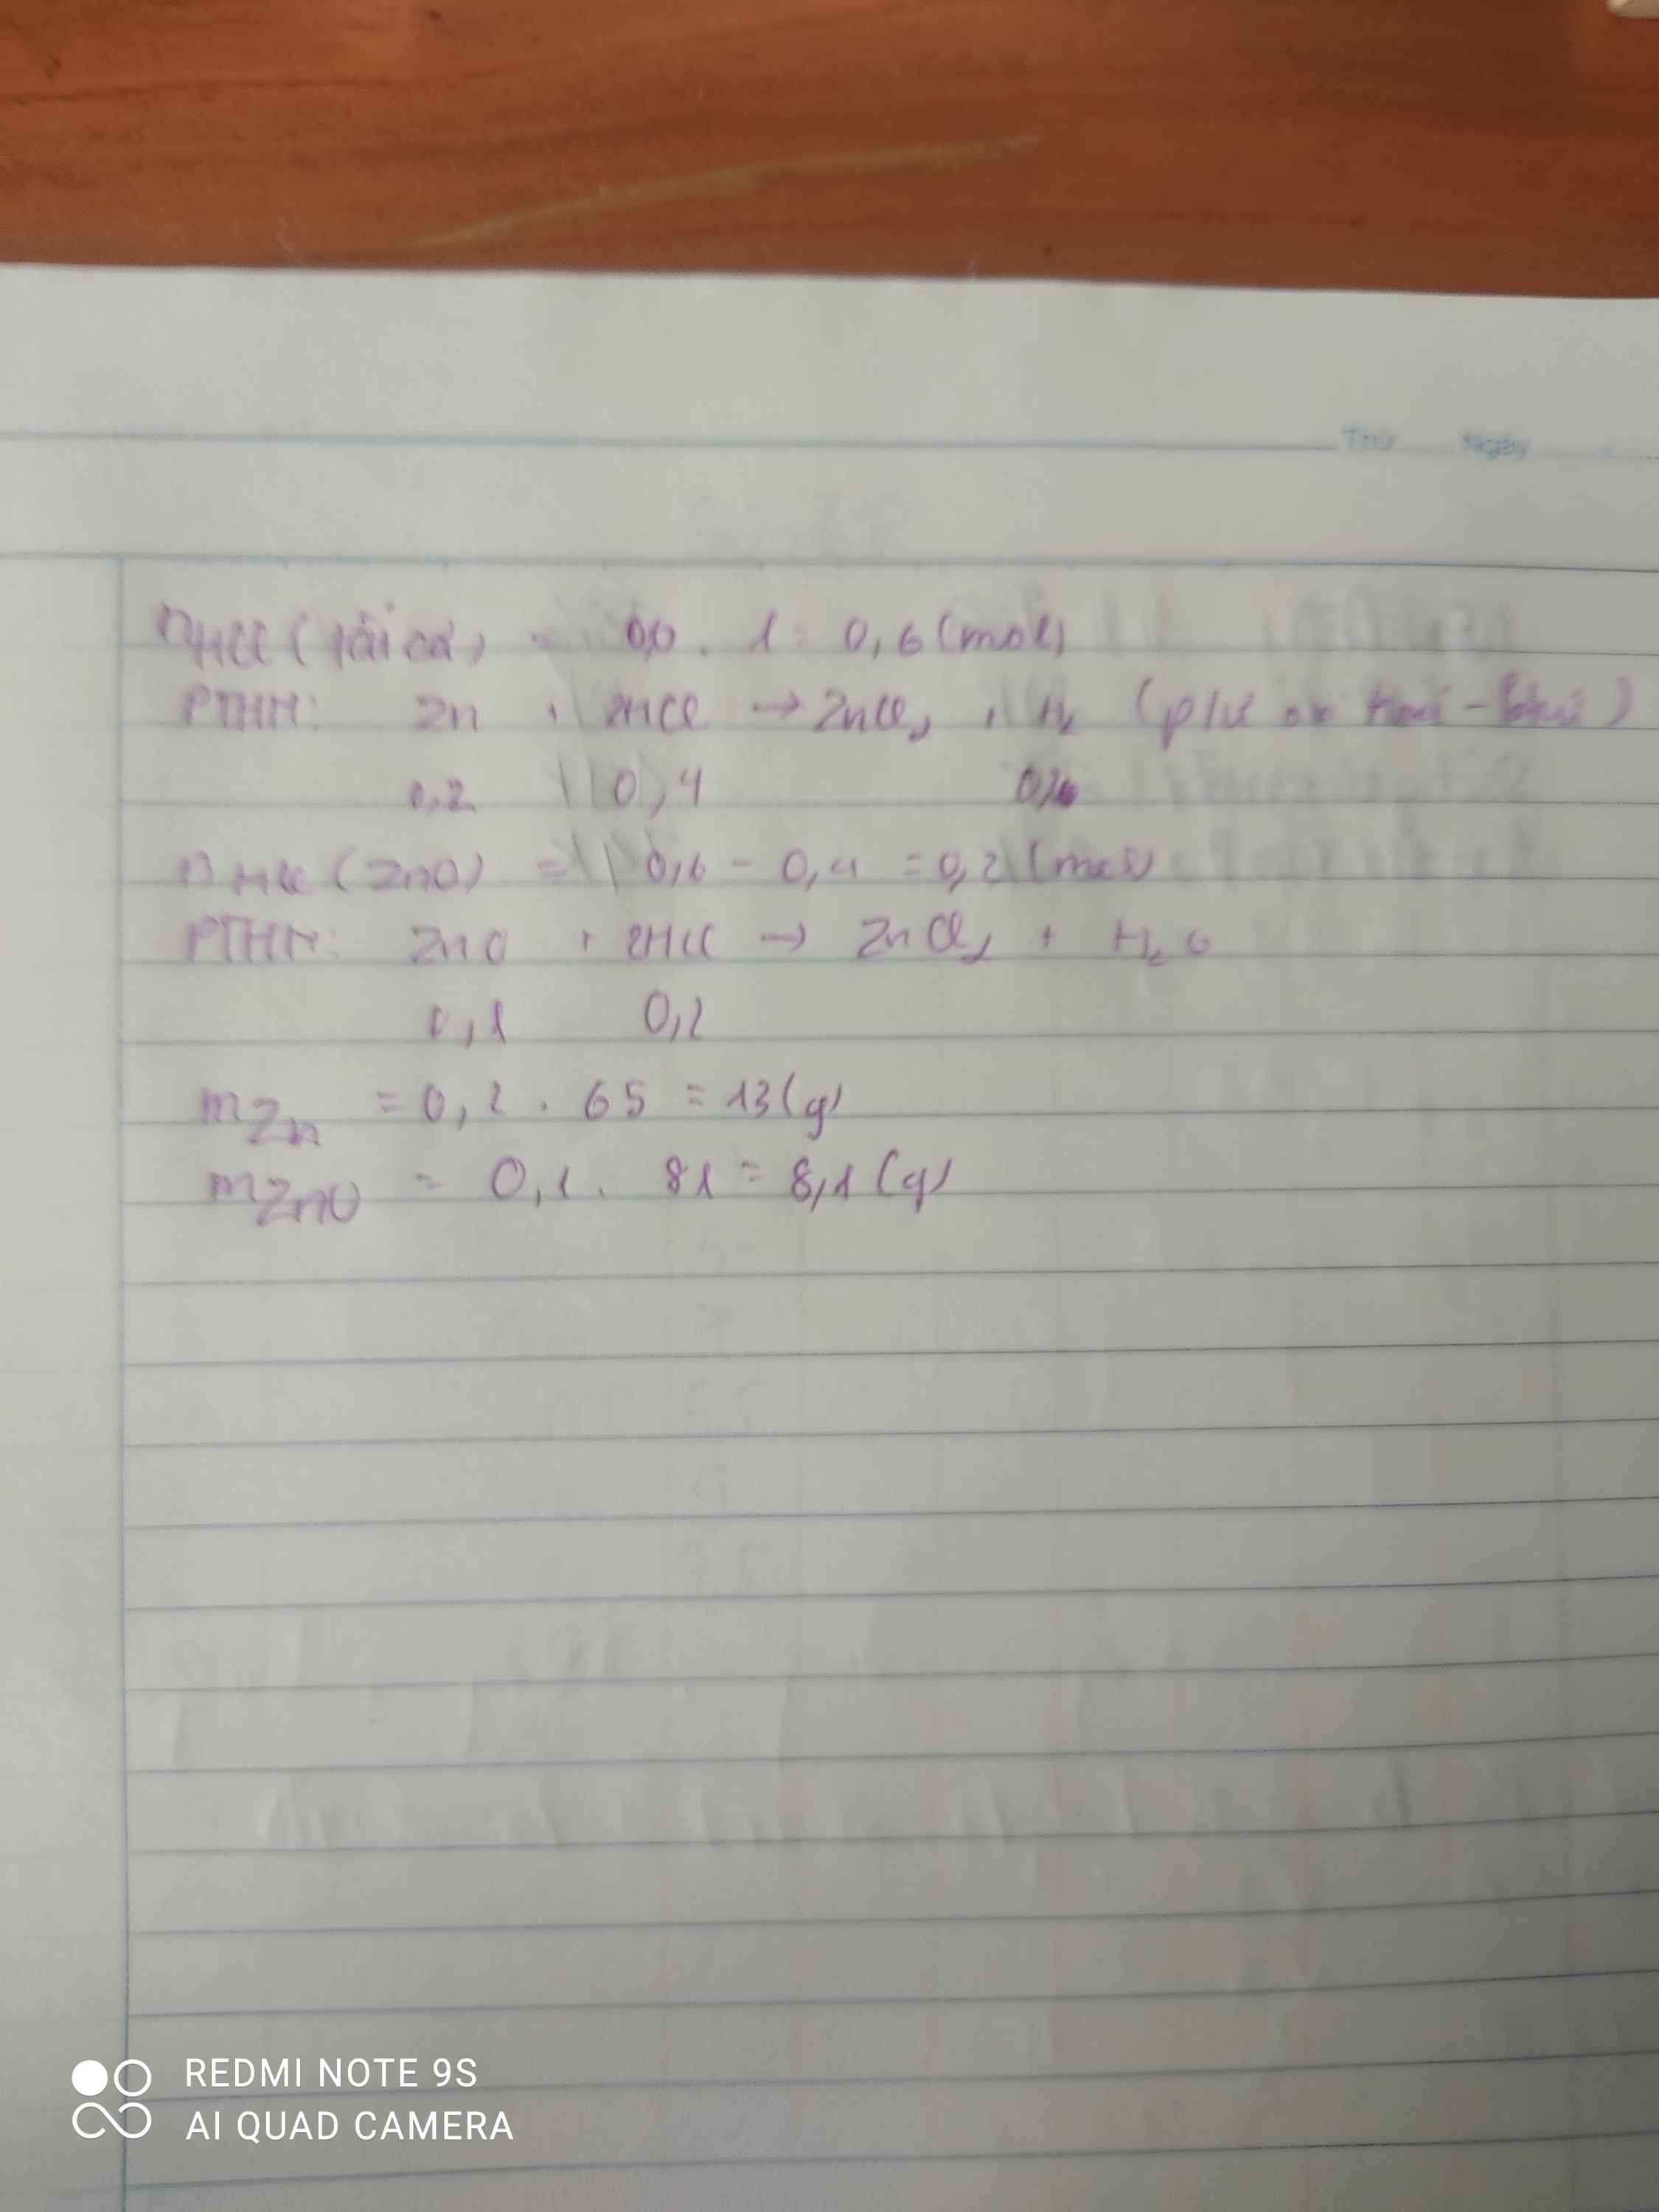 Thứ Ngày
nHCl (tất cả) = . 1 = 0,6 (mol)
PTHH: Zn + 2HCl → ZnCl2 + H2 (p/ư oxi hoá - khử)
0,2 0,4
nHCl (ZnO) = 0,6 - 0,4 = 0,2 (mol)
PTHH: ZnO + 2HCl → ZnCl2 + H2O
0,1 0,2
mZn = 0,2 . 65 = 13 (g)
mZnO = 0,1 . 81 = 8,1 (g)
REDMI NOTE 9S
AI QUAD CAMERA